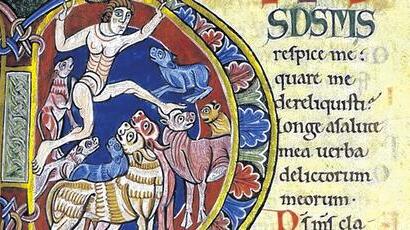 SDSMS
respice me·
quare me
dereliquisti·
longe asalute
mea verba
delictorum
meorum·
Ds ms cla